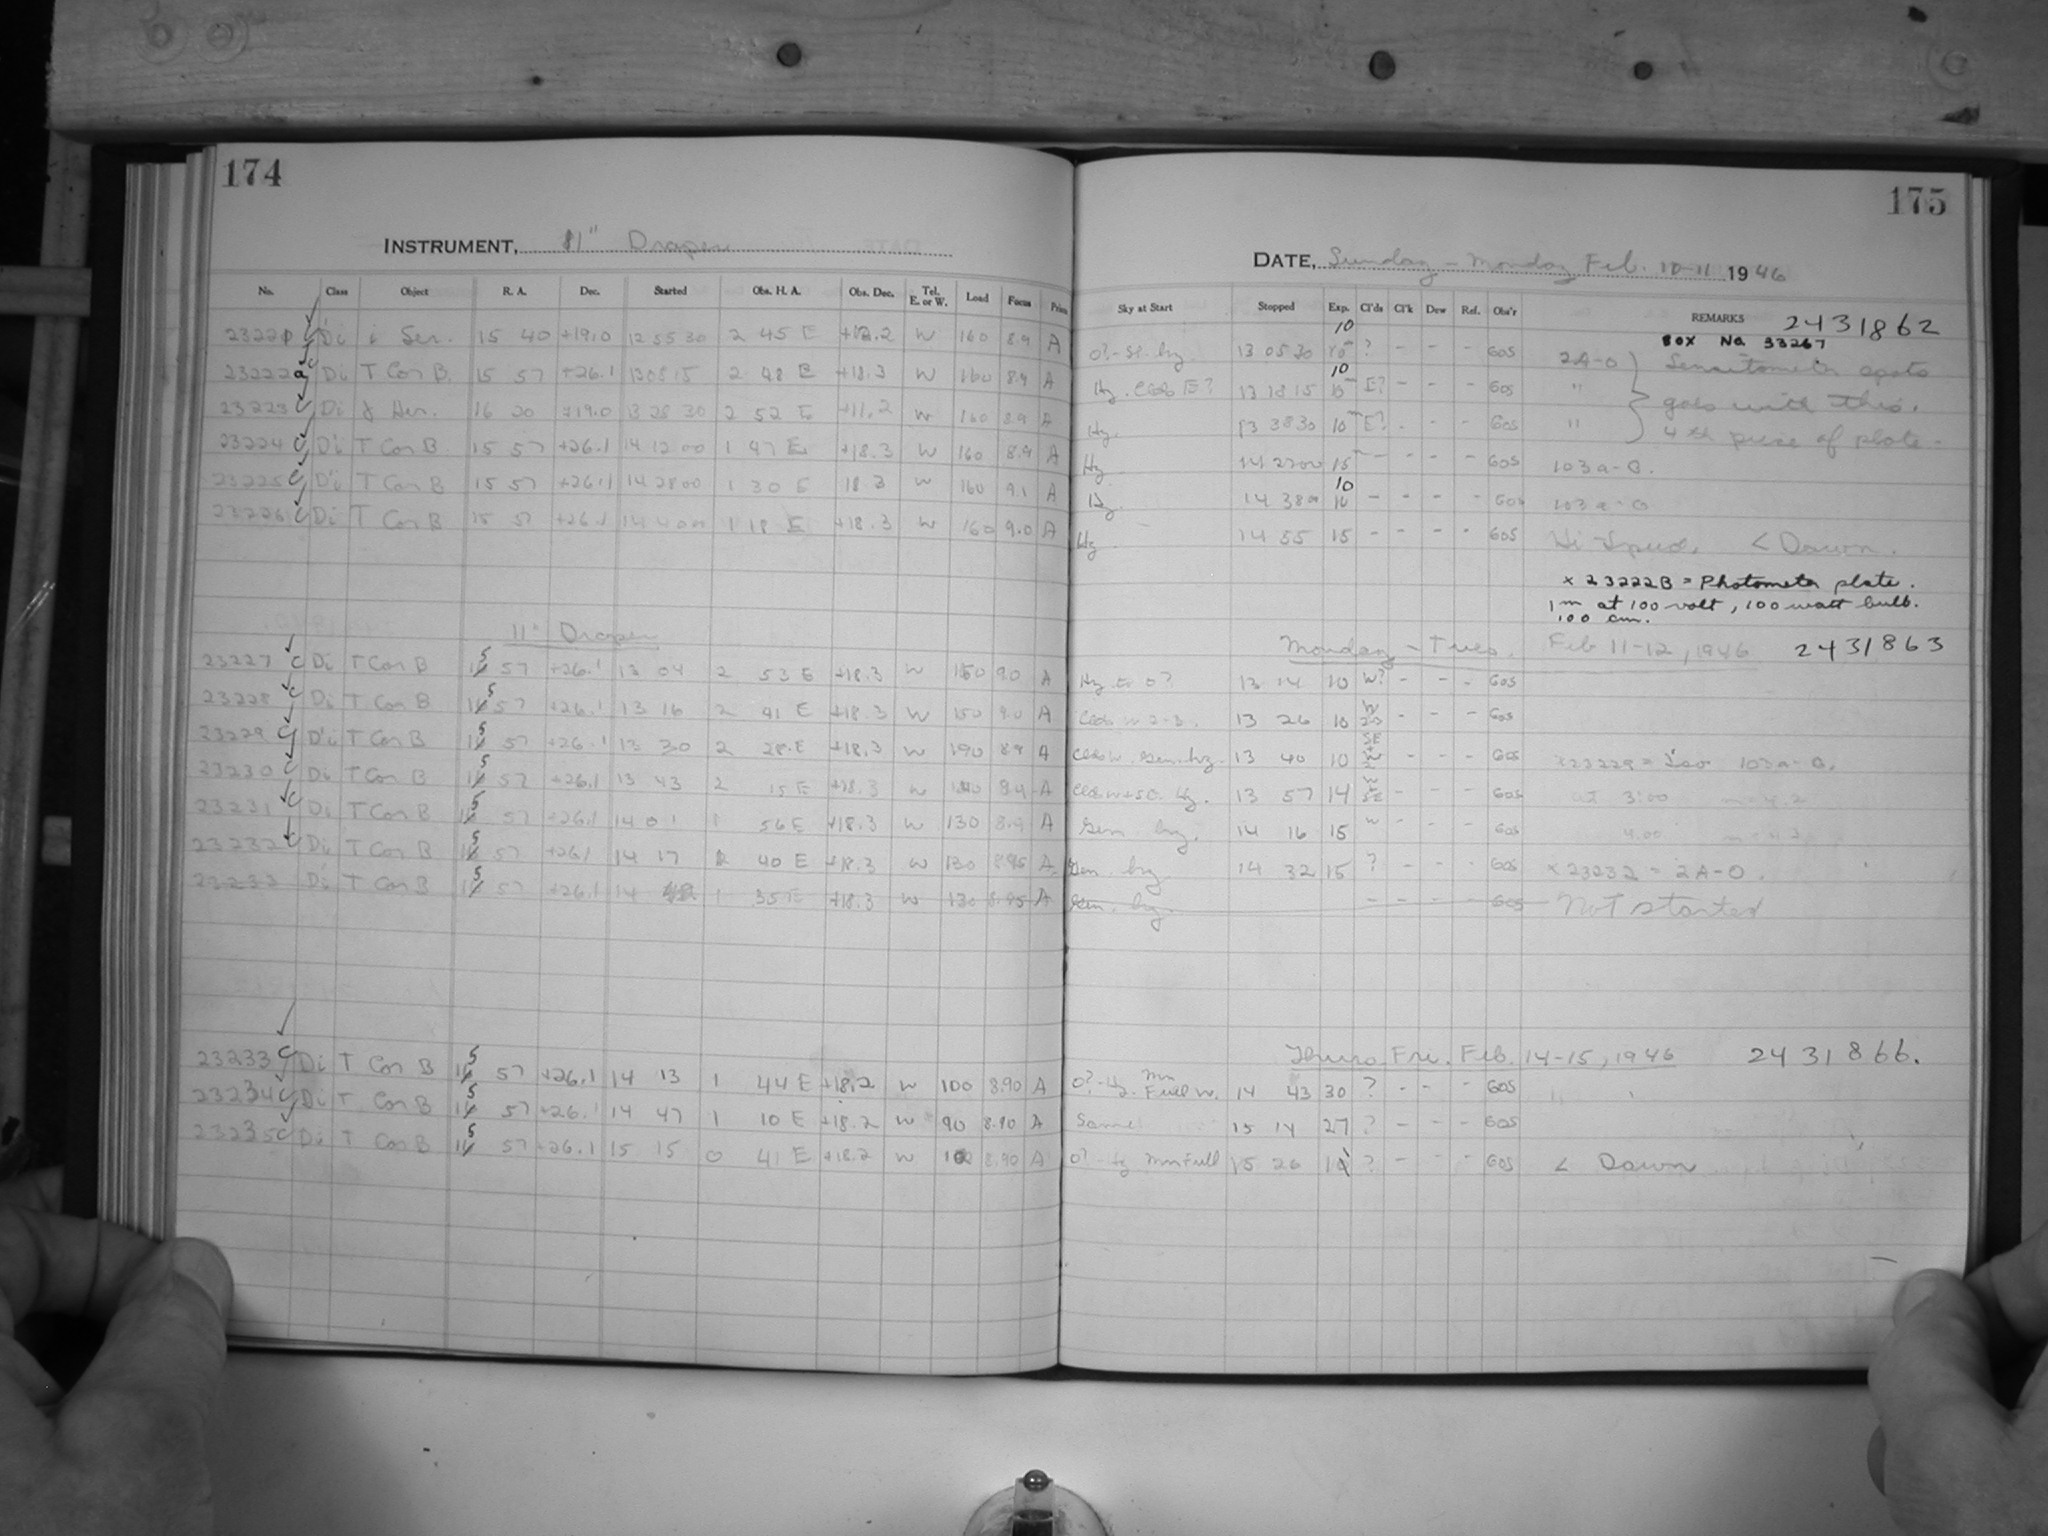 174
INSTRUMENT, 11" Draper
No. Class Object R. A. Dec. Started Obs. H. A. Obs. Dec. Tel. E. or W. Load Focus
23221 C Di i Ser. 15 40 +19.0 12 55 30 2 45 E W 160 8.9 A
23222a C Di T Cor B. 15 57 +26.1 13 08 15 2 48 E +18.3 W 160 8.9 A
23223 C Di γ Her. 16 20 +19.0 13 28 30 2 52 E +11.2 W 160 8.9 A
23224 C Di T Cor B 15 57 +26.1 14 12 00 1 47 E +18.3 W 160 8.9 A
23225 C Di T Cor B 15 57 +26.1 14 28 00 1 30 E 18.3 W 160 9.1 A
23226 C Di T Cor B 15 57 +26.1 14 40 00 1 18 E +18.3 W 160 9.0 A
11" Draper
23227 C Di T Cor B 15 57 +26.1 13 04 2 53 E +18.3 W 150 9.0 A
23228 C Di T Cor B 15 57 +26.1 13 16 2 41 E +18.3 W 150 9.0 A
23229 C Di T Cor B 15 57 +26.1 13 30 2 28 E +18.3 W 190 8.9 A
23230 C Di T Cor B 15 57 +26.1 13 43 2 15 E +18.3 W 8.9 A
23231 C Di T Cor B 15 57 +26.1 14 01 1 56 E +18.3 W 130 8.9 A
23232 C Di T Cor B 15 57 +26.1 14 17 1 40 E +18.3 W 130 8.95 A
23233 Di T Cor B 15 57 +26.1 14 1 35 E +18.3 W 130 8.95 A
23233 C Di T Cor B 15 57 +26.1 14 13 1 44 E +18.2 W 100 8.90 A
23234 C Di T Cor B 15 57 +26.1 14 47 1 10 E +18.2 W 90 8.90 A
23235 C Di T Cor B 15 57 +26.1 15 15 0 41 E +18.2 W 8.90 A
175
DATE, Sunday - Monday Feb. 10-11 1946
Sky at Start Stopped Exp. Cl'ds Cl'k Dew Ref. Obs'r REMARKS 2431862
BOX No. 33267
0? - Sl. hy. 13 05 30 10 ? - - - GOS 2A-O Sensitometer spots
Hy. Clds E? 13 18 15 10 E? - - - GOS " goes with this.
Hy. 13 38 30 10 E? - - - GOS " 4th piece of plate.
Hy. 14 27 00 15 - - - - GOS 103a-O.
Hy. 14 38 00 10 - - - - GOS 103a-O
Hy. 14 55 15 - - - - GOS Hi Speed. < Dawn.
x 23222B = Photometer plate.
1 m at 100 volt, 100 watt bulb.
100 cm.
Monday - Tues. Feb 11-12, 1946 2431863
Hy. or 0? 13 14 10 W? - - - GOS
Clds W 2-3. 13 26 10 W 2-3 - - - GOS
Clds W. Gen. hy. 13 40 10 SE + W - - - GOS x23229 = Iso 103a-O.
Clds W + SE. Hy. 13 57 14 W + SE - - - GOS at 3:00
Gen. hy. 14 16 15 W - - - GOS 4.00
Gen. hy. 14 32 15 ? - - - GOS x23232 = 2A-O.
Gen. hy. - - - - GOS Not started
Thurs Fri. Feb. 14-15, 1946 2431866.
0? - Hy. Mn Full W. 14 43 30 ? - - - GOS
Same 15 14 27 ? - - - GOS
0? - Hy Mn Full 15 26 ? - - - GOS < Dawn